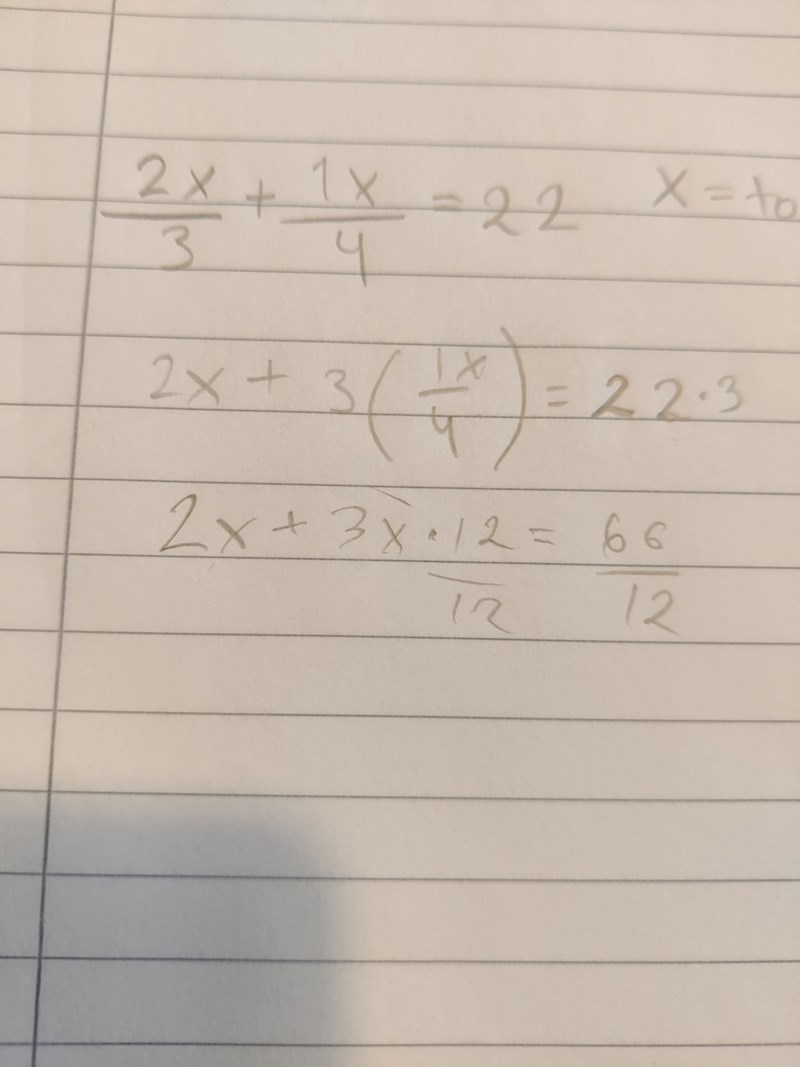 2x/3 + 1x/4 = 22 x = to
2x + 3(1x/4) = 22·3
2x + 3x·12/12 = 66/12